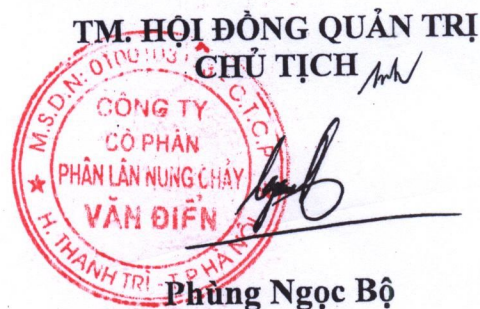 TM. HỘI ĐỒNG QUẢN TRỊ
CHỦ TỊCH
M.S.D.N: C.T.C.P
CÔNG TY
CỔ PHẦN
PHÂN LÂN NUNG CHẢY
VĂN ĐIỂN
H. THANH TRÌ - T.P HÀ NỘI
Phùng Ngọc Bộ